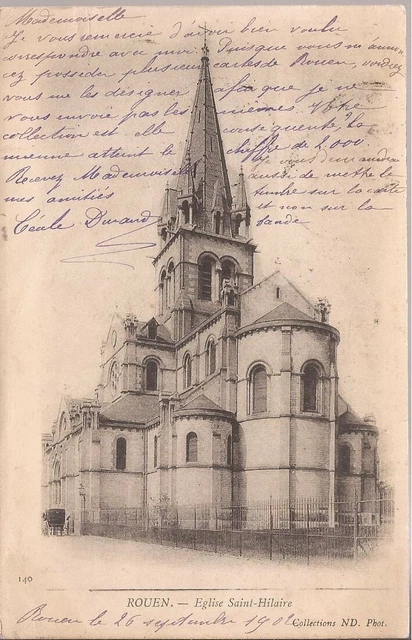 Mademoiselle
Je vous remercie d'avoir bien voulu
correspondre avec moi. Puisque vous m'annon
cez posséder plusieurs cartes de Rouen, voudrez
vous me les désigner afin que je ne
vous envoie pas les mêmes. Votre
collection est elle conséquente, la
mienne atteint le chiffre de 2,000.
Recevez Mademoiselle
mes amitiés
Cécile Durand
Je voudrai
aussi de mettre le
timbre sur la carte
et non sur la
bande
140
ROUEN. — Eglise Saint-Hilaire
Collections ND. Phot.
Rouen le 26 septembre 190